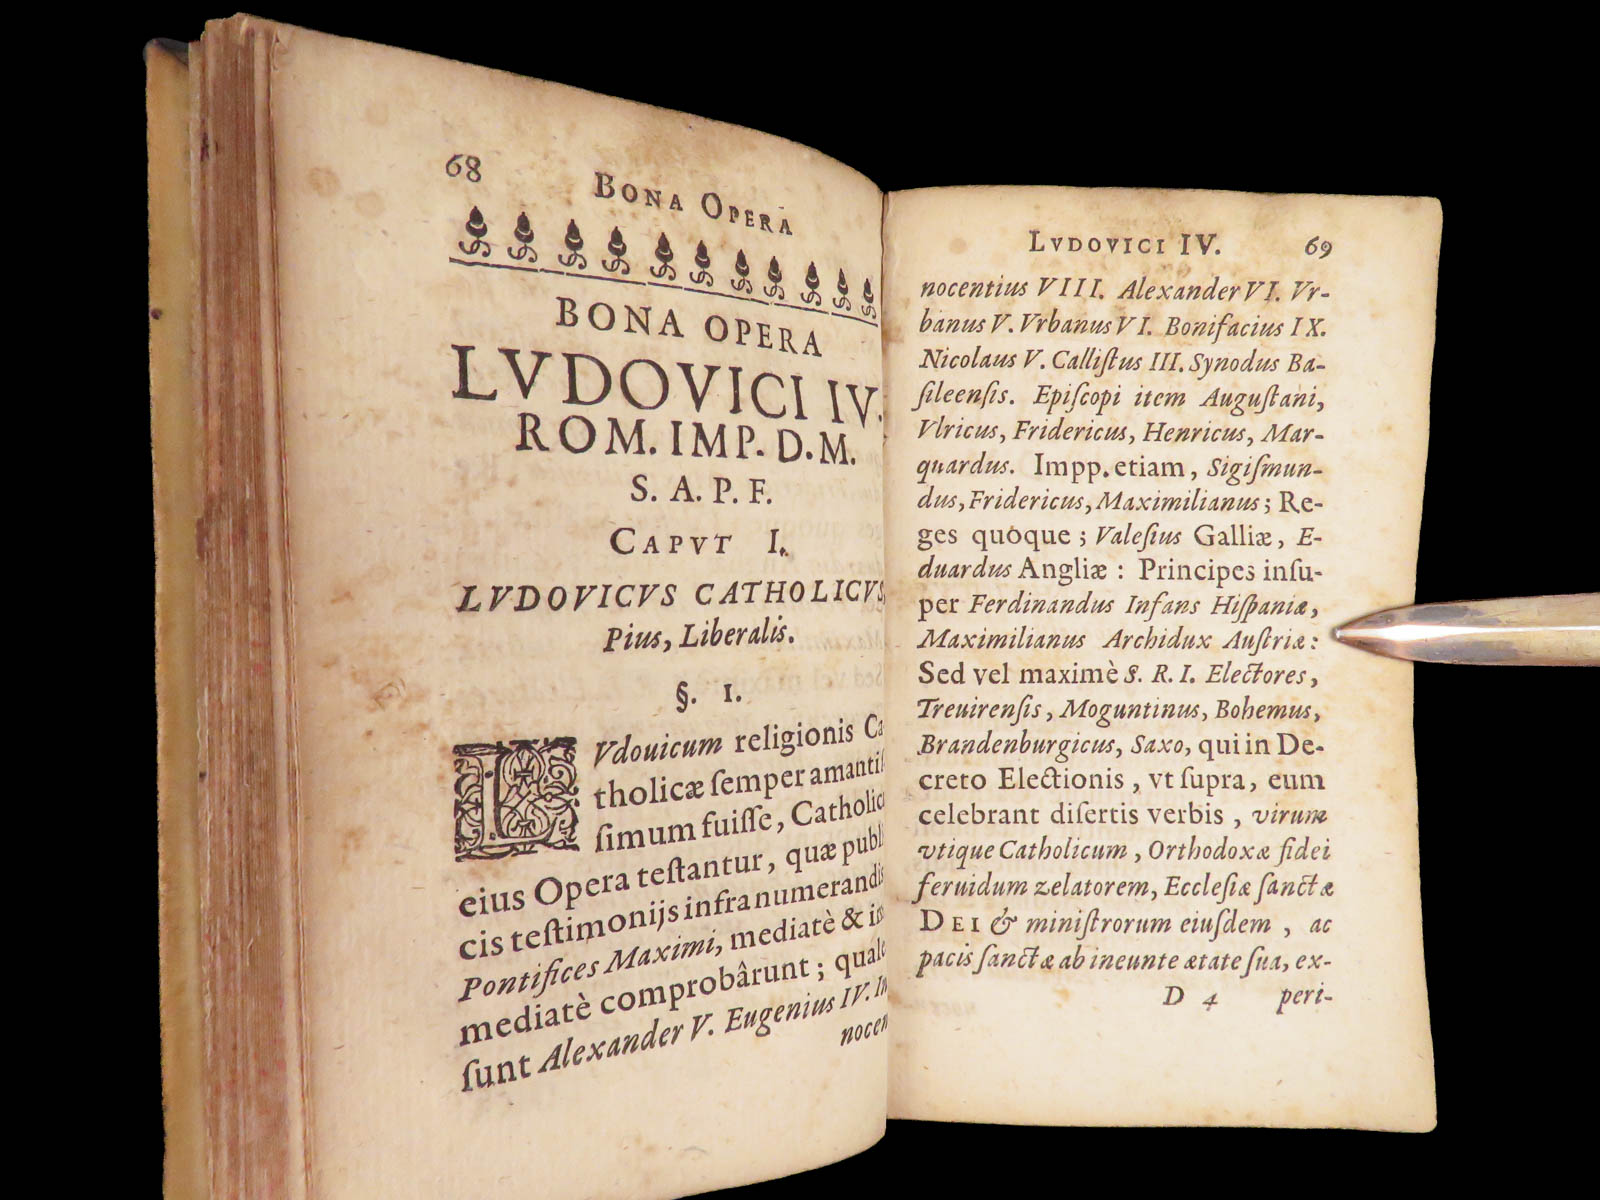 68 BONA OPERA
BONA OPERA
LVDOVICI IV.
ROM. IMP. D. M.
S. A. P. F.
CAPVT I.
LVDOVICVS CATHOLICVS,
Pius, Liberalis.
§. I.
LVdouicum religionis Ca-
tholicæ ſemper amantiſ-
ſimum fuiſſe, Catholica
eius Opera teſtantur, quæ publi-
cis teſtimonijs infra numerandis
Pontifices Maximi, mediatè & im-
mediatè comprobârunt; quales
ſunt Alexander V. Eugenius IV. In-
nocen-
LVDOVICI IV. 69
nocentius VIII. Alexander VI. Vr-
banus V. Vrbanus VI. Bonifacius IX.
Nicolaus V. Calliſtus III. Synodus Ba-
ſileenſis. Epiſcopi item Auguſtani,
Vlricus, Fridericus, Henricus, Mar-
quardus. Impp. etiam, Sigiſmun-
dus, Fridericus, Maximilianus; Re-
ges quoque; Valeſius Galliæ, E-
duardus Angliæ: Principes inſu-
per Ferdinandus Infans Hiſpaniæ,
Maximilianus Archidux Auſtriæ:
Sed vel maximè S. R. I. Electores,
Treuirenſis, Moguntinus, Bohemus,
Brandenburgicus, Saxo, qui in De-
creto Electionis, vt ſupra, eum
celebrant diſertis verbis, virum
vtique Catholicum, Orthodoxæ fidei
feruidum zelatorem, Eccleſiæ ſanctæ
DEI & miniſtrorum eiuſdem, ac
pacis ſanctæ ab ineunte ætate ſua, ex-
D 4 peri-